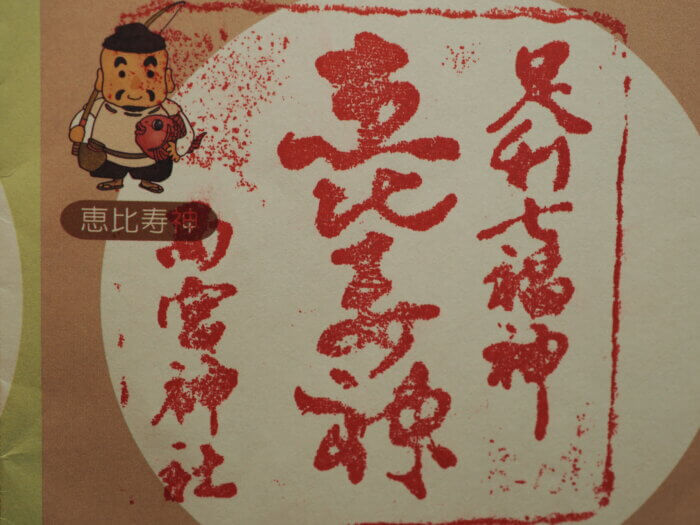 足利七福神
恵比寿神
西宮神社
恵比寿神